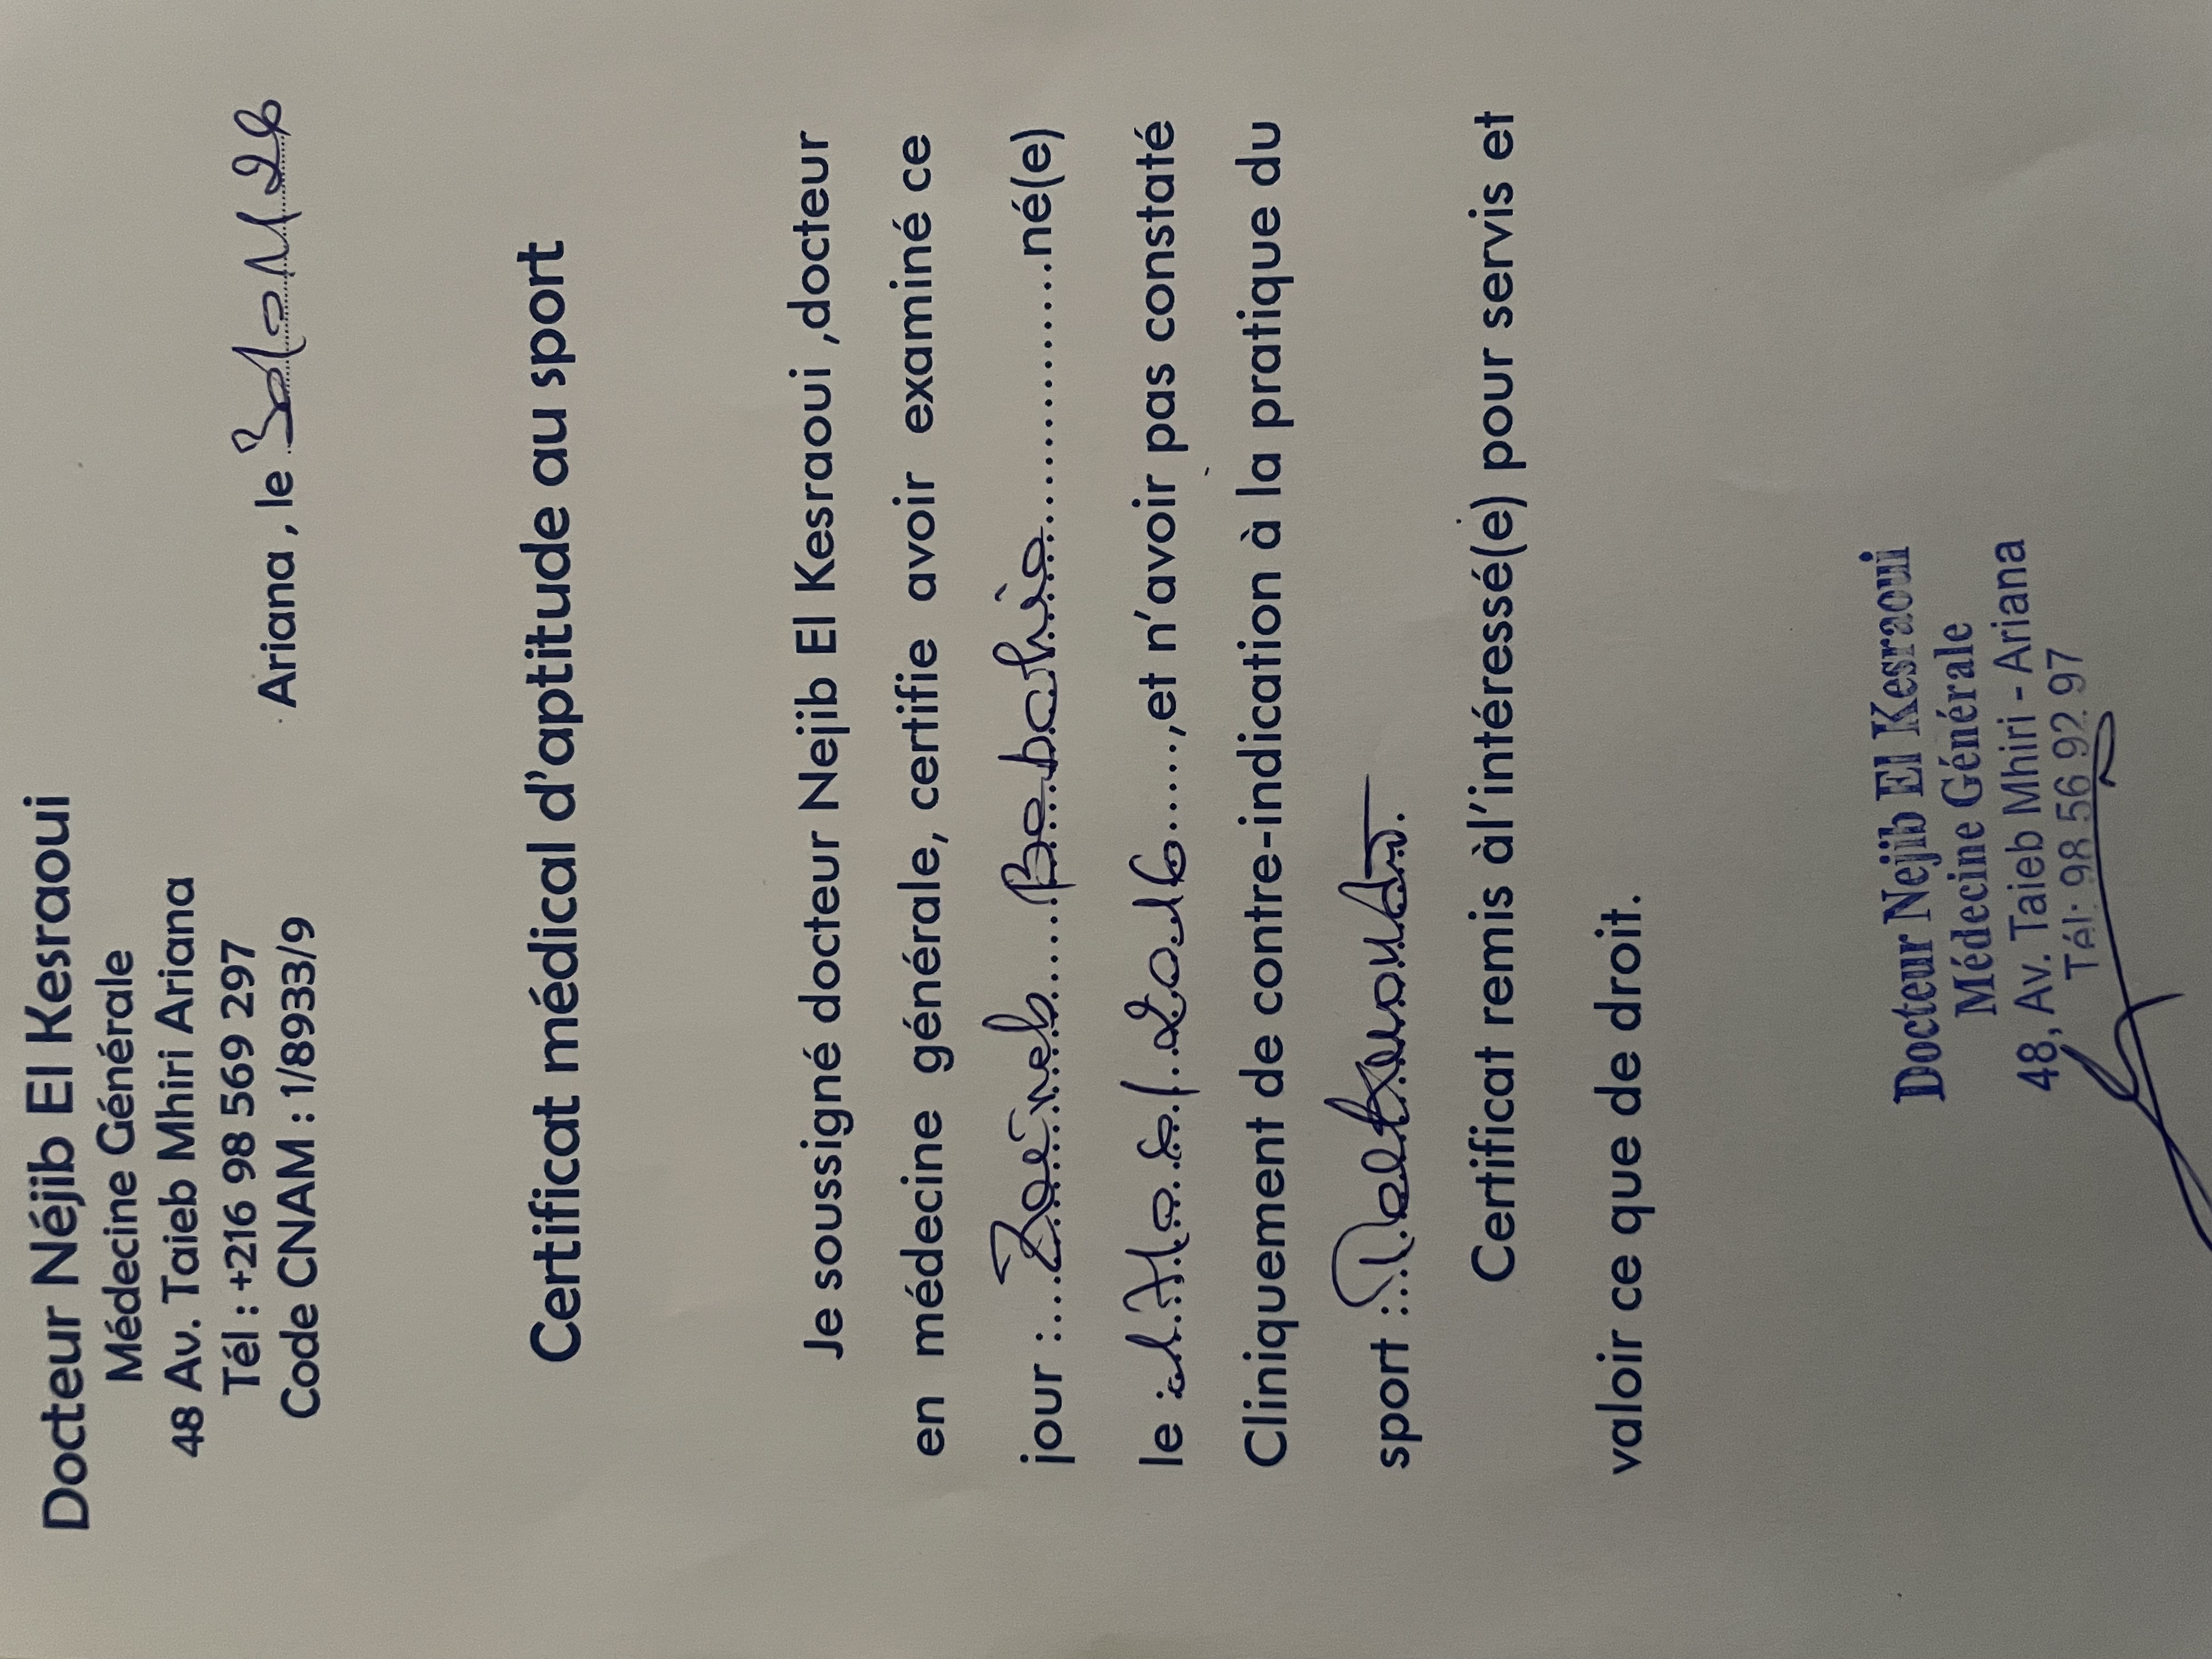 Docteur Néjib El Kesraoui
Médecine Générale
48 Av. Taieb Mhiri Ariana
Tél : +216 98 569 297
Code CNAM : 1/8933/9
Ariana, le
Certificat médical d'aptitude au sport
Je soussigné docteur Nejib El Kesraoui ,docteur
en médecine générale, certifie avoir examiné ce
jour :....Zeineb......Bebachie..................né(e)
le : / 2016.....,et n'avoir pas constaté
Cliniquement de contre-indication à la pratique du
sport :
Certificat remis àl'intéressé(e) pour servis et
valoir ce que de droit.
Docteur Nejib El Kesraoui
Médecine Générale
48, Av. Taieb Mhiri - Ariana
Tél: 98 56 92 97